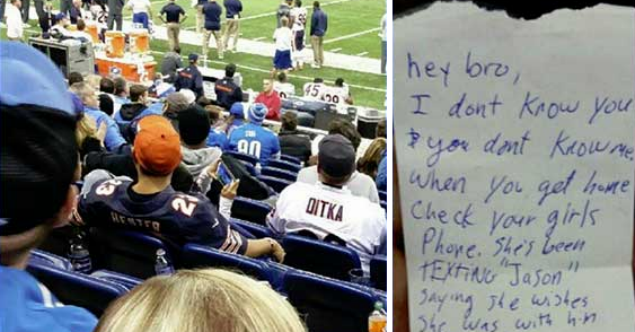 HESTER
23
DITKA
90
45
hey bro,
I dont know you
& you dont know me
when you get home
check your girls
Phone. She's been
TEXTING "Jason"
saying she wishes
She was with him